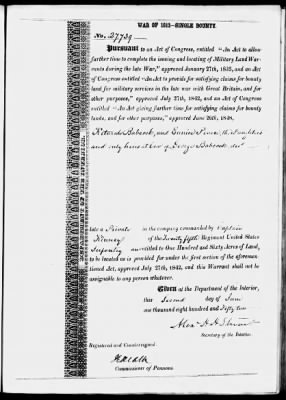 WAR OF 1812—SINGLE BOUNTY.
No. 27739
Pursuant to an Act of Congress, entitled "An Act to allow
further time to complete the issuing and locating of Military Land War-
rants during the late War," approved January 27th, 1835, and an Act
of Congress entitled "An Act to provide for satisfying claims for bounty
lands for military services in the late war with Great Britain, and for
other purposes," approved July 27th, 1842, and an Act of Congress
entitled "An Act giving further time for satisfying claims for bounty
lands, and for other purposes," approved June 26th, 1848,
Babcock, and
and only heirs at law of George Babcock, dec'd
late a Private in the company commanded by Captain
Kinney of the Twenty fifth Regiment United States
Infantry are entitled to One Hundred and Sixty Acres of Land,
to be located as is provided for under the first section of the aforemen-
tioned Act, approved July 27th, 1842, and this Warrant shall not be
assignable to any person whatever.
Given at the Department of the Interior,
this Second day of June
one thousand eight hundred and Fifty two
Alex. H. H. Stuart
Secretary of the Interior.
Registered and Countersigned:
Commissioner of Pensions.